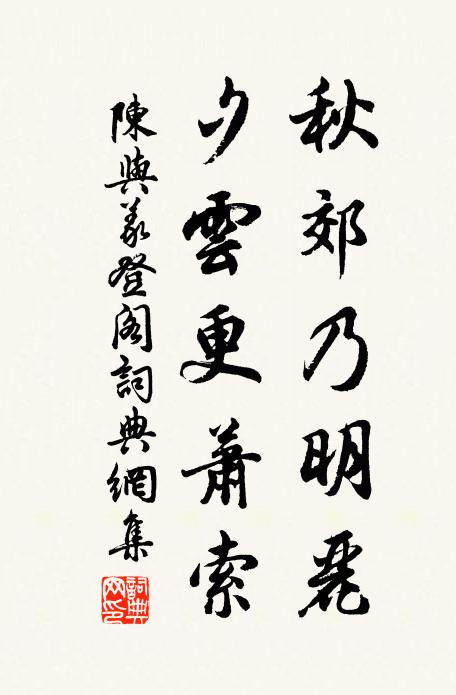 秋郊乃明麗
夕雲更蕭索
陳與義登閣詞典網集
詞典網印